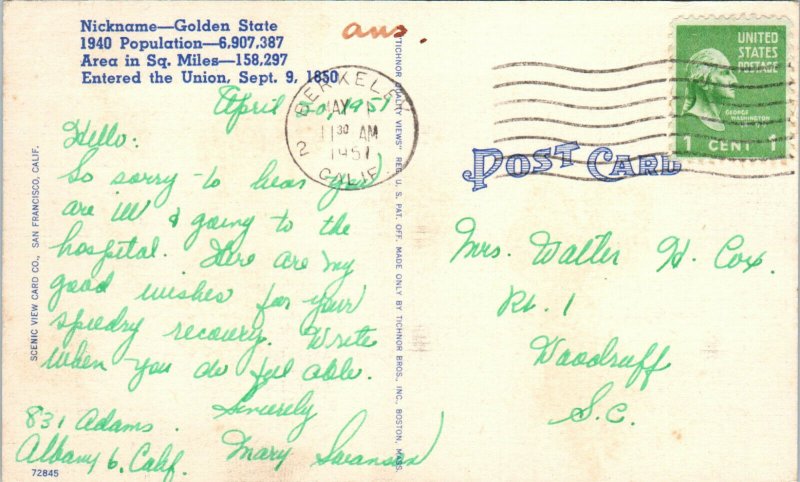 Nickname—Golden State
1940 Population—6,907,387
Area in Sq. Miles—158,297
Entered the Union, Sept. 9, 1850
ans.
April 30, 1951
Hello:
So sorry to hear you
are ill & going to the
hospital. Here are my
good wishes for your
speedry recovery. Write
when you do feel able.
Sincerely
Mary Swanson
831 Adams.
Albany 6, Calif.
72845
SCENIC VIEW CARD CO., SAN FRANCISCO, CALIF.
"TICHNOR QUALITY VIEWS" REG. U. S. PAT. OFF. MADE ONLY BY TICHNOR BROS., INC., BOSTON, MASS.
BERKELEY
MAY 1
11 30 AM
1951
2
CALIF.
UNITED
STATES
POSTAGE
GEORGE
WASHINGTON
1 CENT 1
POST CARD
Mrs. Walter H. Cox.
Rt. 1
Woodruff
S.C.